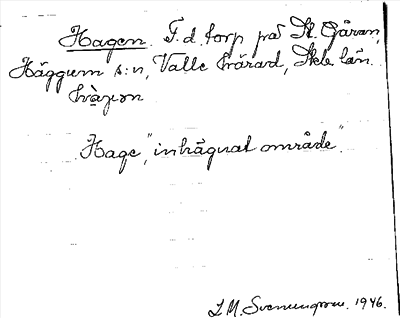 Hagen. F.d. torp på St. Gåran,
Häggum s:n, Valle härad, Skb. län.
Hage, "inhägnat område".
L.M. Svenungsson. 1946.